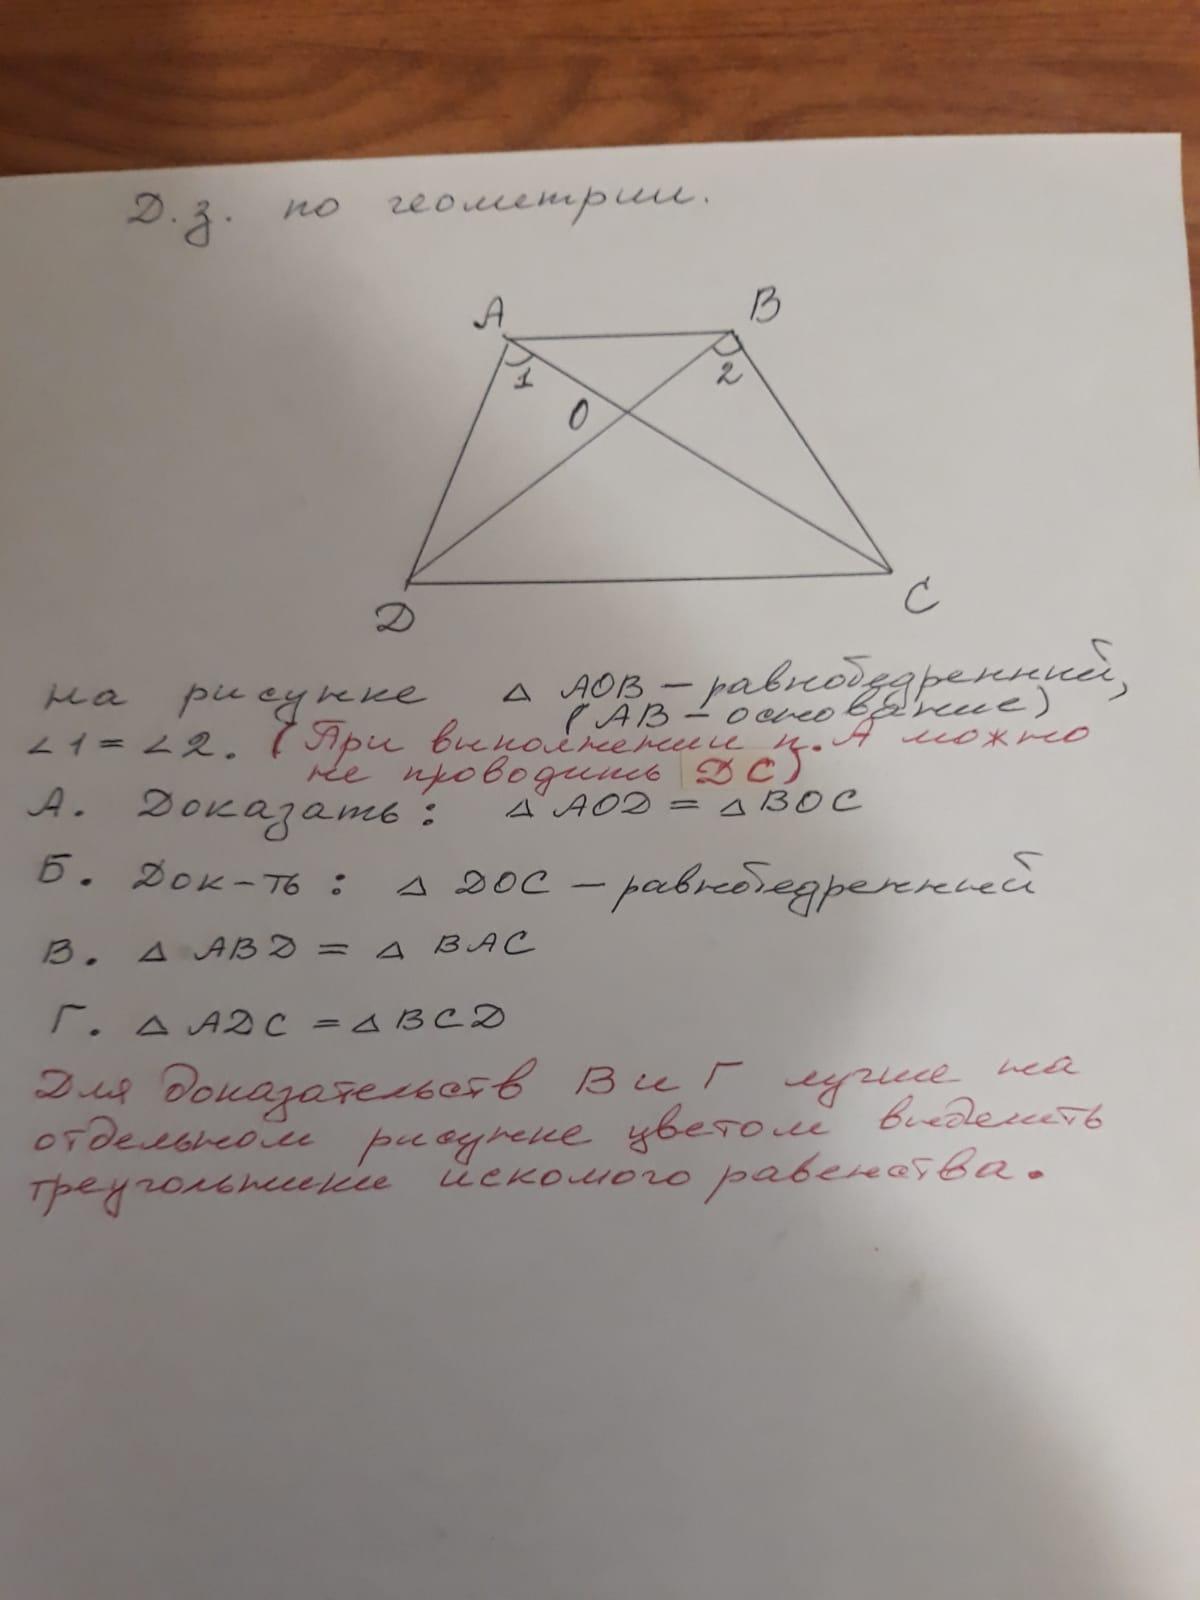 Д.з. по геометрии.
A B
1 2
O
D C
На рисунке △ AOB – равнобедренный,
(AB – основание)
∠1 = ∠2. (При выполнении п. А можно
не проводить DC)
А. Доказать: △ AOD = △ BOC
Б. Док-ть: △ DOC – равнобедренный
В. △ ABD = △ BAC
Г. △ ADC = △ BCD
Для доказательств В и Г лучше на
отдельном рисунке цветом выделить
треугольники искомого равенства.